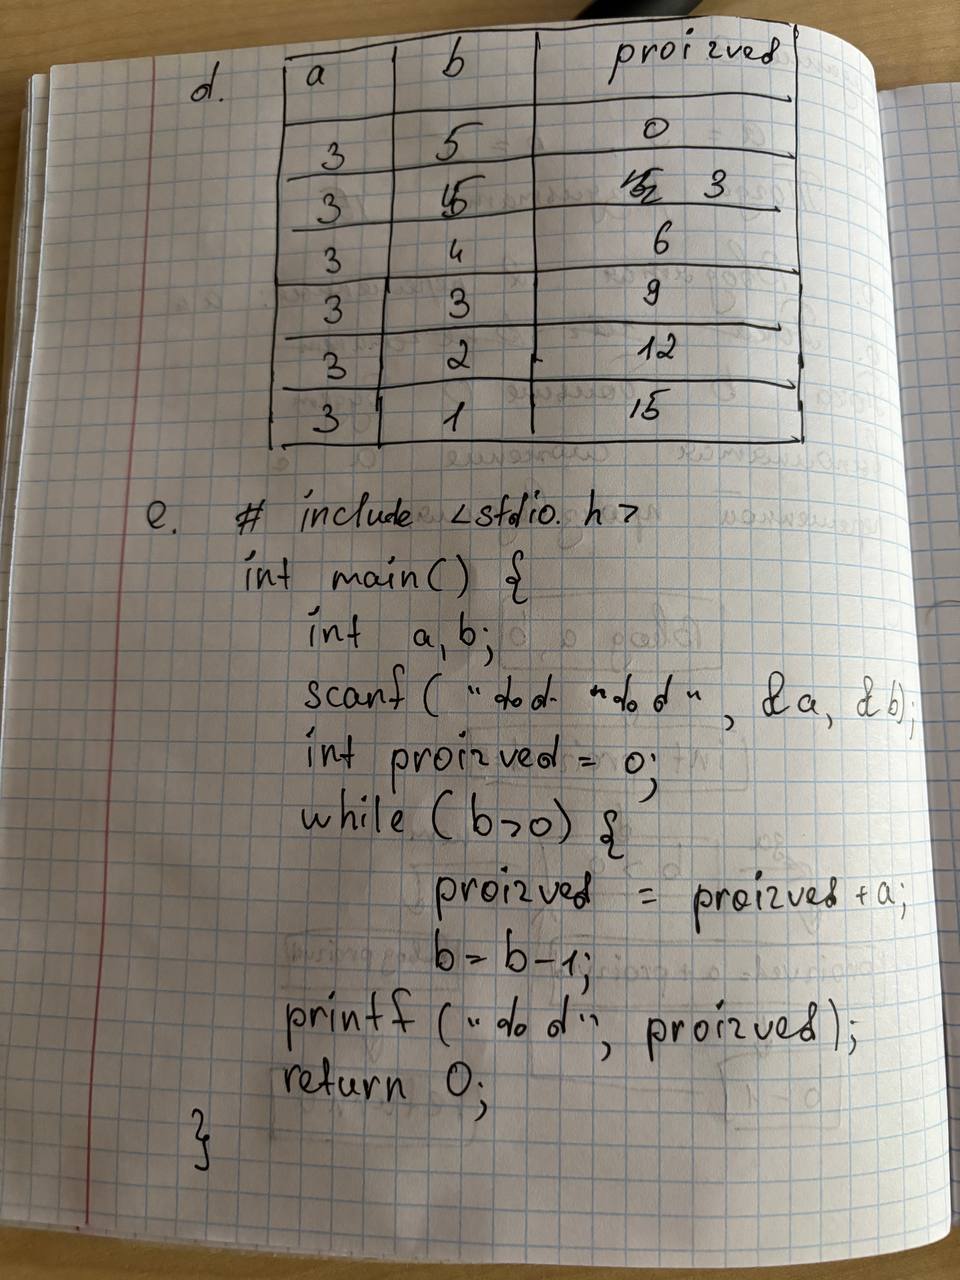 d.
a b proizved
3 5 0
3 5 3
3 4 6
3 3 9
3 2 12
3 1 15
e. # include <stdio.h>
int main() {
int a, b;
scanf ("%d %d", &a, &b);
int proizved = 0;
while (b>0) {
proizved = proizved + a;
b = b-1;
printf ("%d", proizved);
return 0;
}